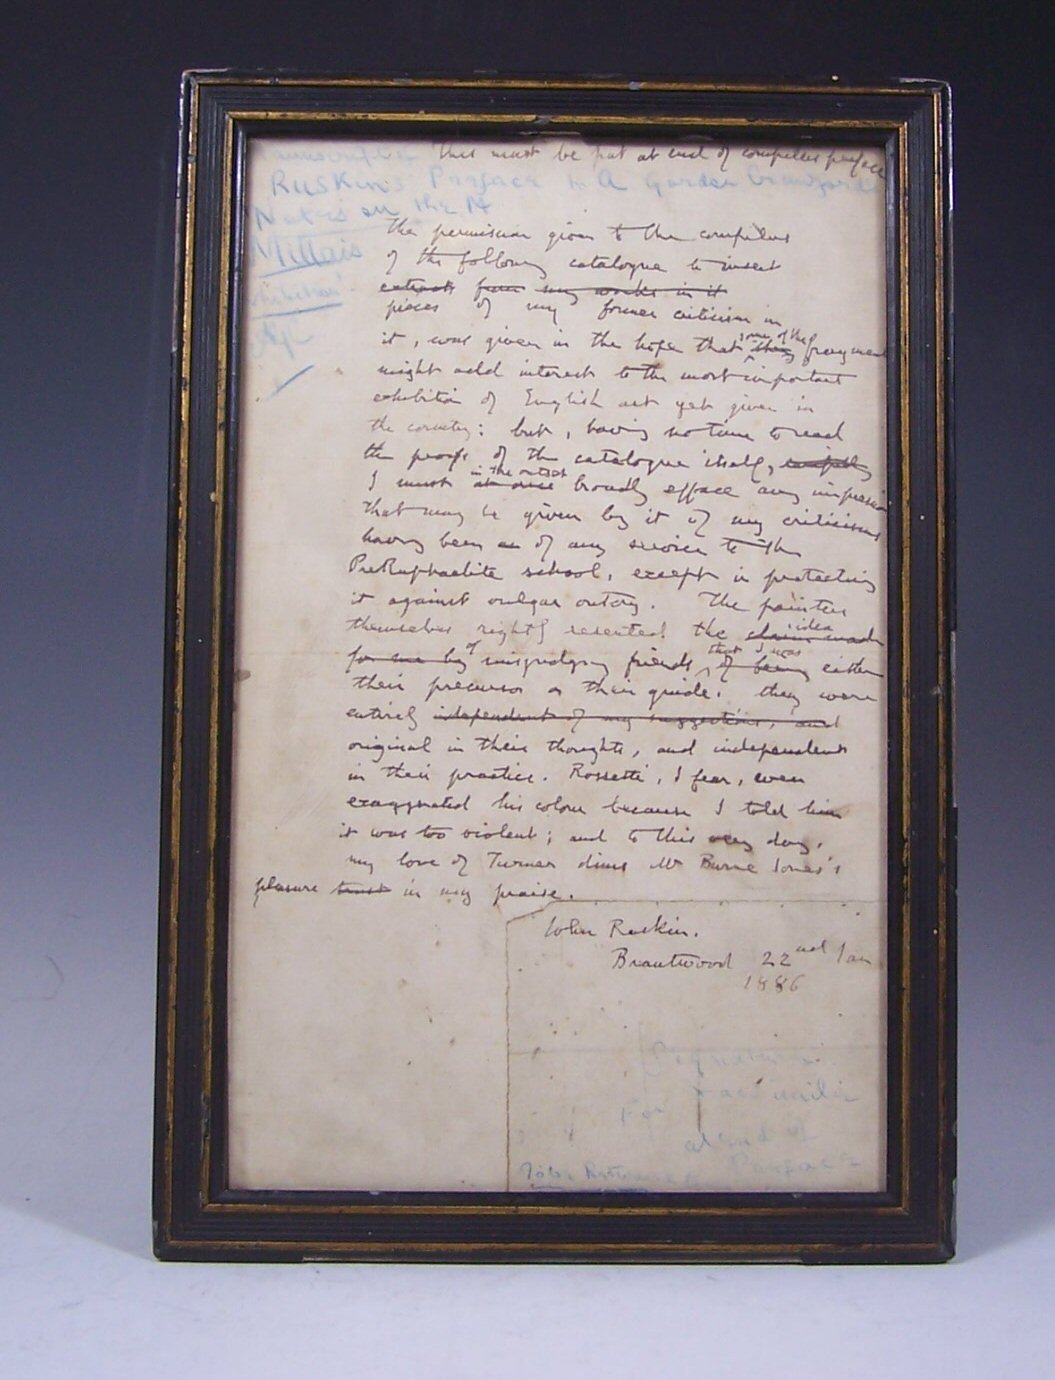 This must be put at end of compilers preface
Ruskin's Preface to A Gordon Crawford
Notes on the
Millais
The permission given to the compilers
of the following catalogue to insert
extracts from my works in it
pieces of my former criticism in
it, was given in the hope that they some of the fragments
might add interest to the most important
exhibition of English art yet given in
the country: but, having no time to read
the proofs of the catalogue itself, carefully
I must at once in the outset broadly efface any impression
that may be given by it of my criticisms
having been of any service to the
PreRaphaelite school, except in protecting
it against vulgar outcry. The painters
themselves rightly resented the claim made idea
for me by of misjudging friends, of being that I was either
their precursor or their guide: they were
entirely independent of my suggestions, and
original in their thoughts, and independent
in their practice. Rossetti, I fear, even
exaggerated his colour because I told him
it was too violent; and to this very day,
my love of Turner dims Mr Burne Jones's
pleasure trust in my praise.
John Ruskin.
Brantwood 22nd Jan
1886
Signature
facsimile
For
at end of
Preface